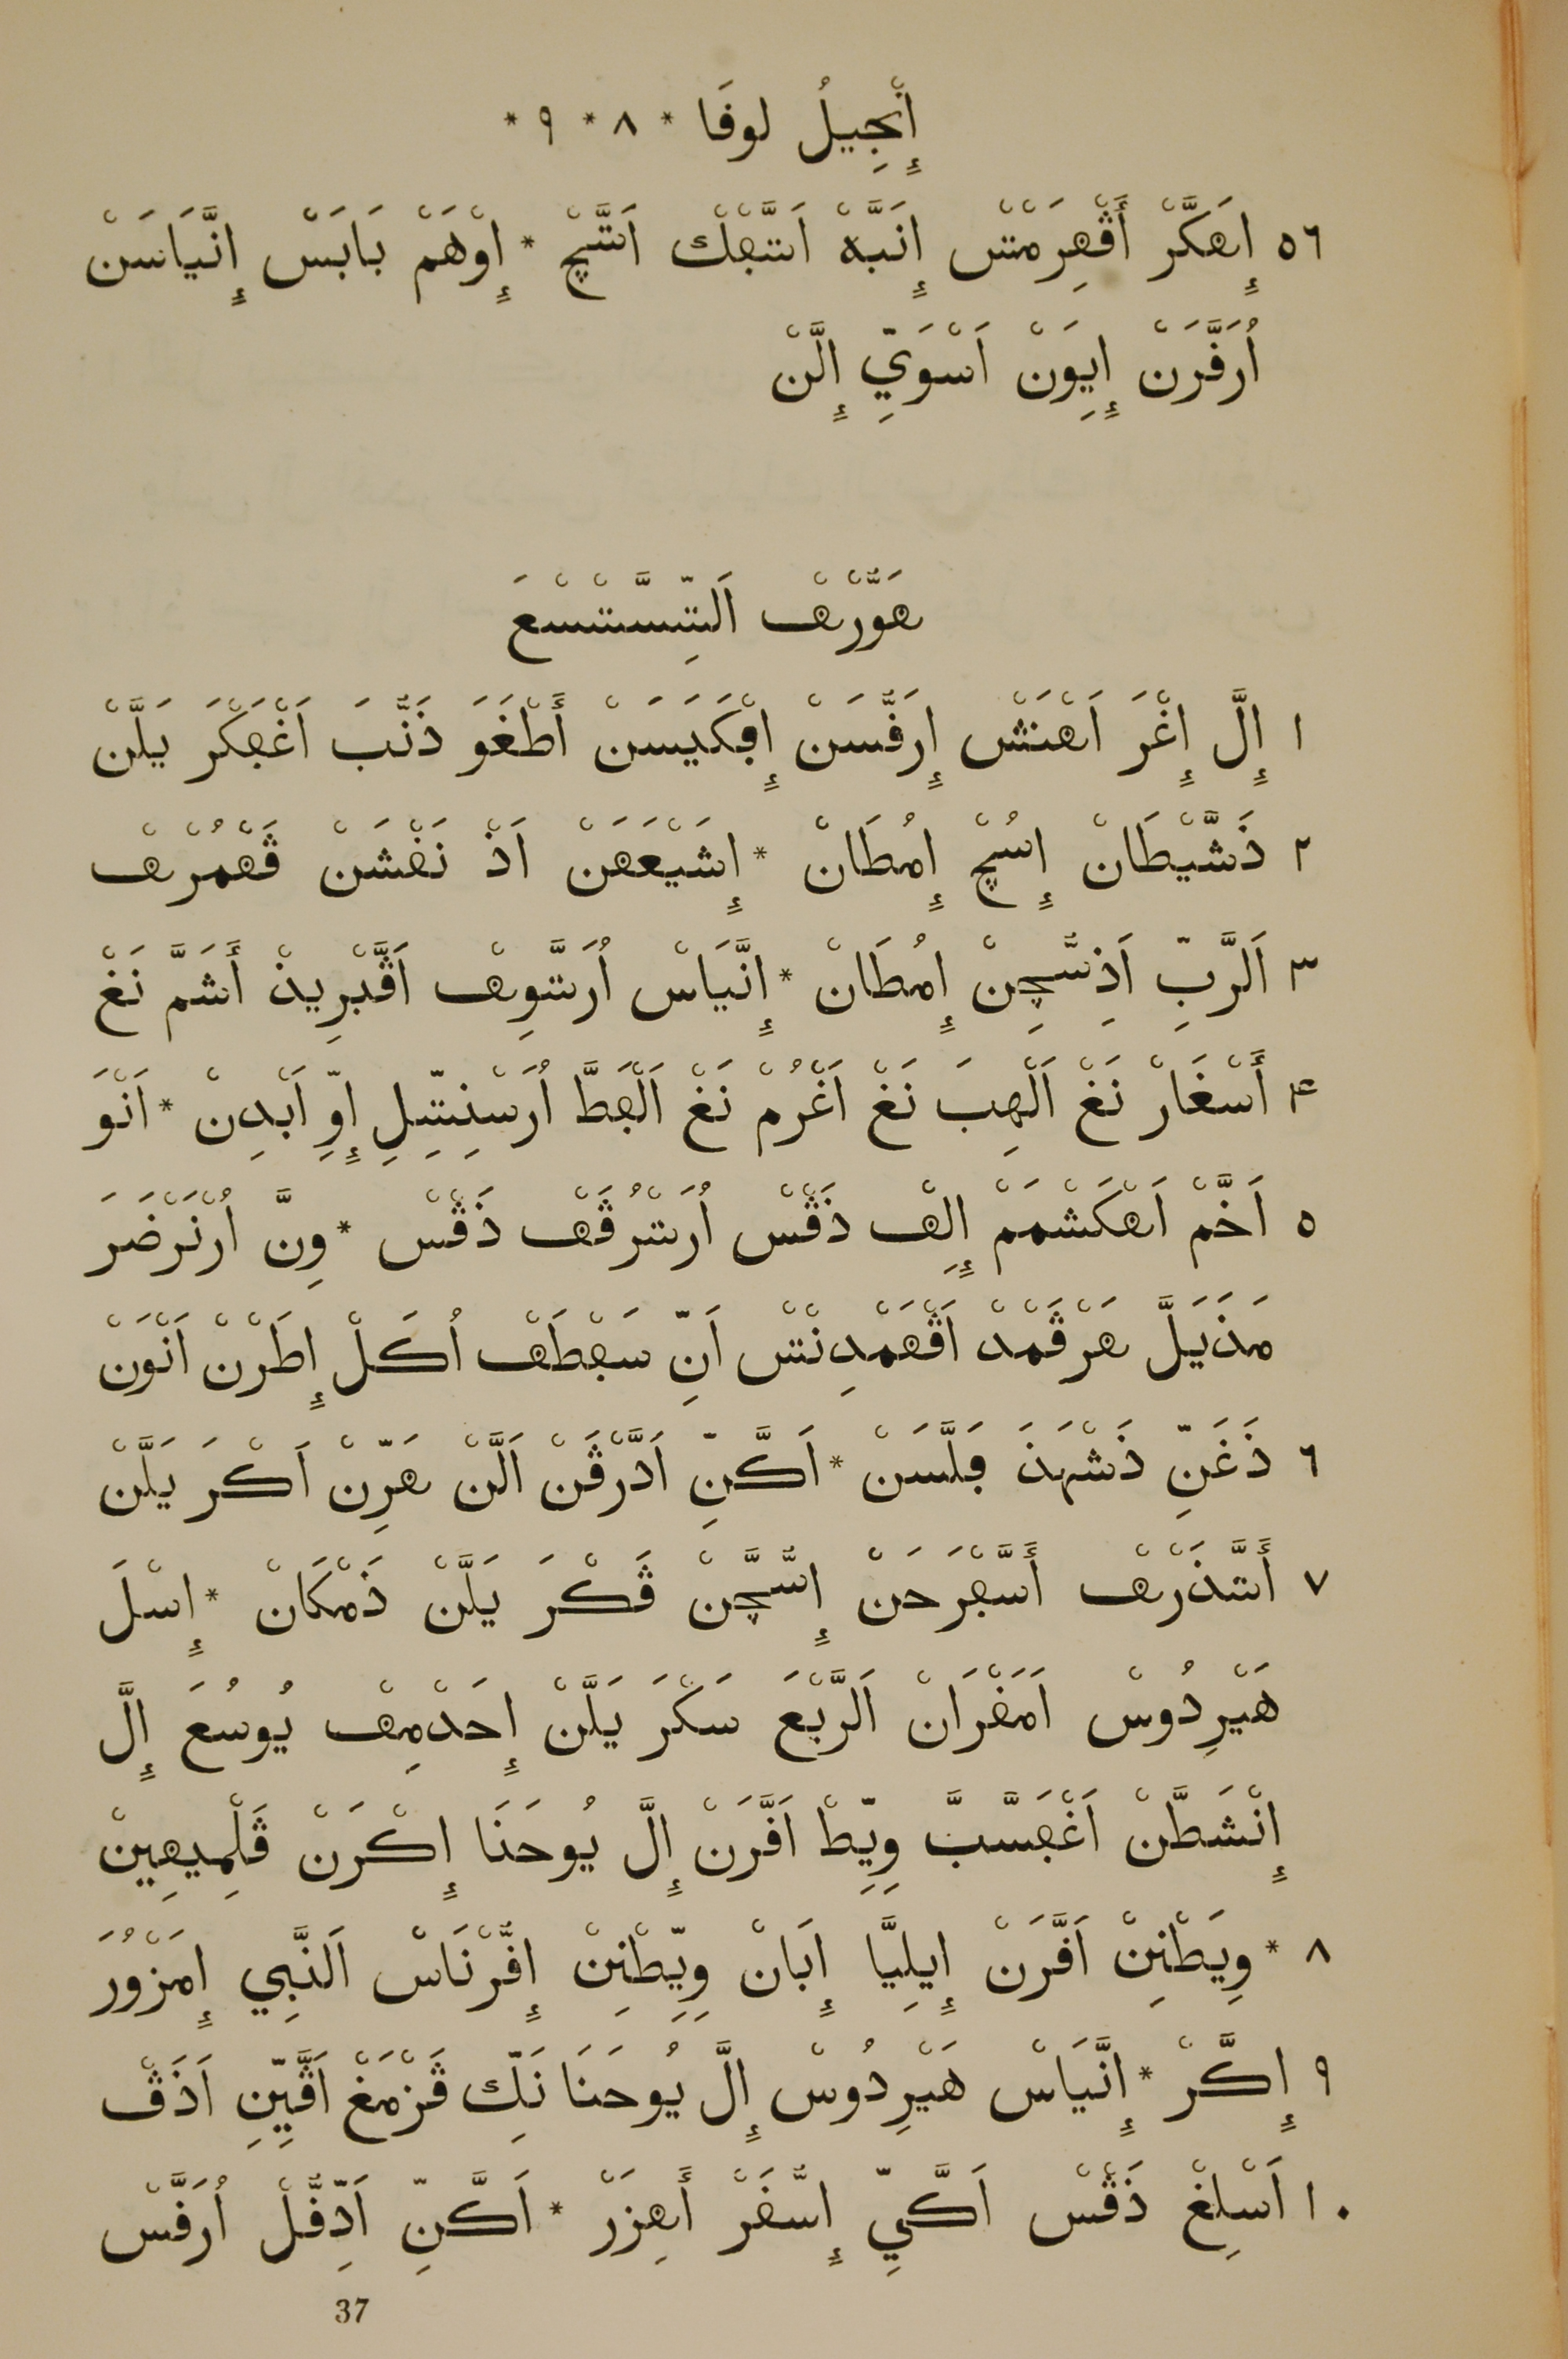 إِٕنْجِيلُ لوفَا * ٨ * ٩ *
٥٦ إِٕهَكَّرْ أَڤْهِرَمْتْسْ إِٕنَبَّهْ اَتَّڢْكْ اَتَّسْڿْ * إِٕوْهَمْ بَابَسْ إِٕنَّيَاسَنْ
اُرَفَّرَنْ إِٕيِوَنْ اَسْوَيِّ إِٕلَّنْ
هَوُّرْثْ اَلتِّسَّتْسْعَ
١ إِٕلَّ إِٕغْرَ اَثْنَشْ إِٕرَفُّسَنْ إِٕڢْكَيَسَنْ أَطْغَوَ ذَنُّبَ اَغْڢَكْرَ يَلَّنْ
٢ ذَشَّيْطَانْ إِٕسُڿْ إِٕمُطَانْ * إِٕشَيْعَهَنْ اَذْ نَڢْشَنْ ڤَهْمُرْثْ
٣ اَلرَّبِّ اَذِسُّڿِنْ إِٕمُطَانْ * إِٕنَّيَاسْ اُرَتَّوِثْ اَڤَّبْرِيذْ أَشَمَّ نَغْ
۴ أَسْغَارْ نَغْ اَلْهِبَ نَغْ اَغْرُمْ نَغْ اَلْڢَطَّ اُرَسْنِتِّلِ إِٕوِّ اَبْدِنْ * اَنْوَ
٥ اَخَّمْ اَهْكَشْمَمْ إِٕلِثْ ذَڤْسْ اُرَتْرُڤَثْ ذَڤْسْ * وِنَّ اُرْنَرْضَرَ
مَذَيَلَّ هَرْڤَمْدْ اَڤْهَمْدِنْتْسْ اَنِّ سَڢْطَثْ اُكَلْ إِٕطَرْنْ اَنْوَنْ
٦ ذَغَنِّ ذَشْهَذَ ڢَلَّسَنْ * اَكَّنِّ اَدَّرْڤَنْ اَلَّنْ هَرِّنْ اَكْرَ يَلَّنْ
٧ أَتَّذَرْثْ أَسَّڢْرَحَنْ إِٕسُّڿَّنْ ڤَكْرَ يَلَّنْ ذَمْكَانْ * إِٕسْلَ
هَيْرِدُوسْ اَمَڢْرَانْ اَلرَّبْعَ سَكْرَ يَلَّنْ إِٕحَدْمِثْ يُوسُعَ إِٕلَّ
إِٕنْشَطَّنْ اَغْڢَسَّبَّ وِيِّطْ اَفَّرَنْ إِٕلَّ يُوحَنَا إِٕكْرَنْ ڤَلْمِيهِينْ
٨ * وِيَطْنِنْ اَفَّرَنْ إِٕيلِيَّا إِٕبَانْ وِيِّطْنِنْ إِٕفَّرْنَاسْ اَلنَّبِي إِٕمَزْوُرَ
٩ إِٕكَّرْ * إِٕنَّيَاسْ هَيْرِدُوسْ إِٕلَّ يُوحَنَا نَكِّ ڤَزْمَغْ اَڤَّيِّنِ اَذَڤْ
١٠ اَسْلِغْ ذَڤْسْ اَكَّيِّ إِٕسُّفَرْ أَهِزَرْ * اَكَّنِّ اَدِّفُّلْ اُرَفَّسْ
37